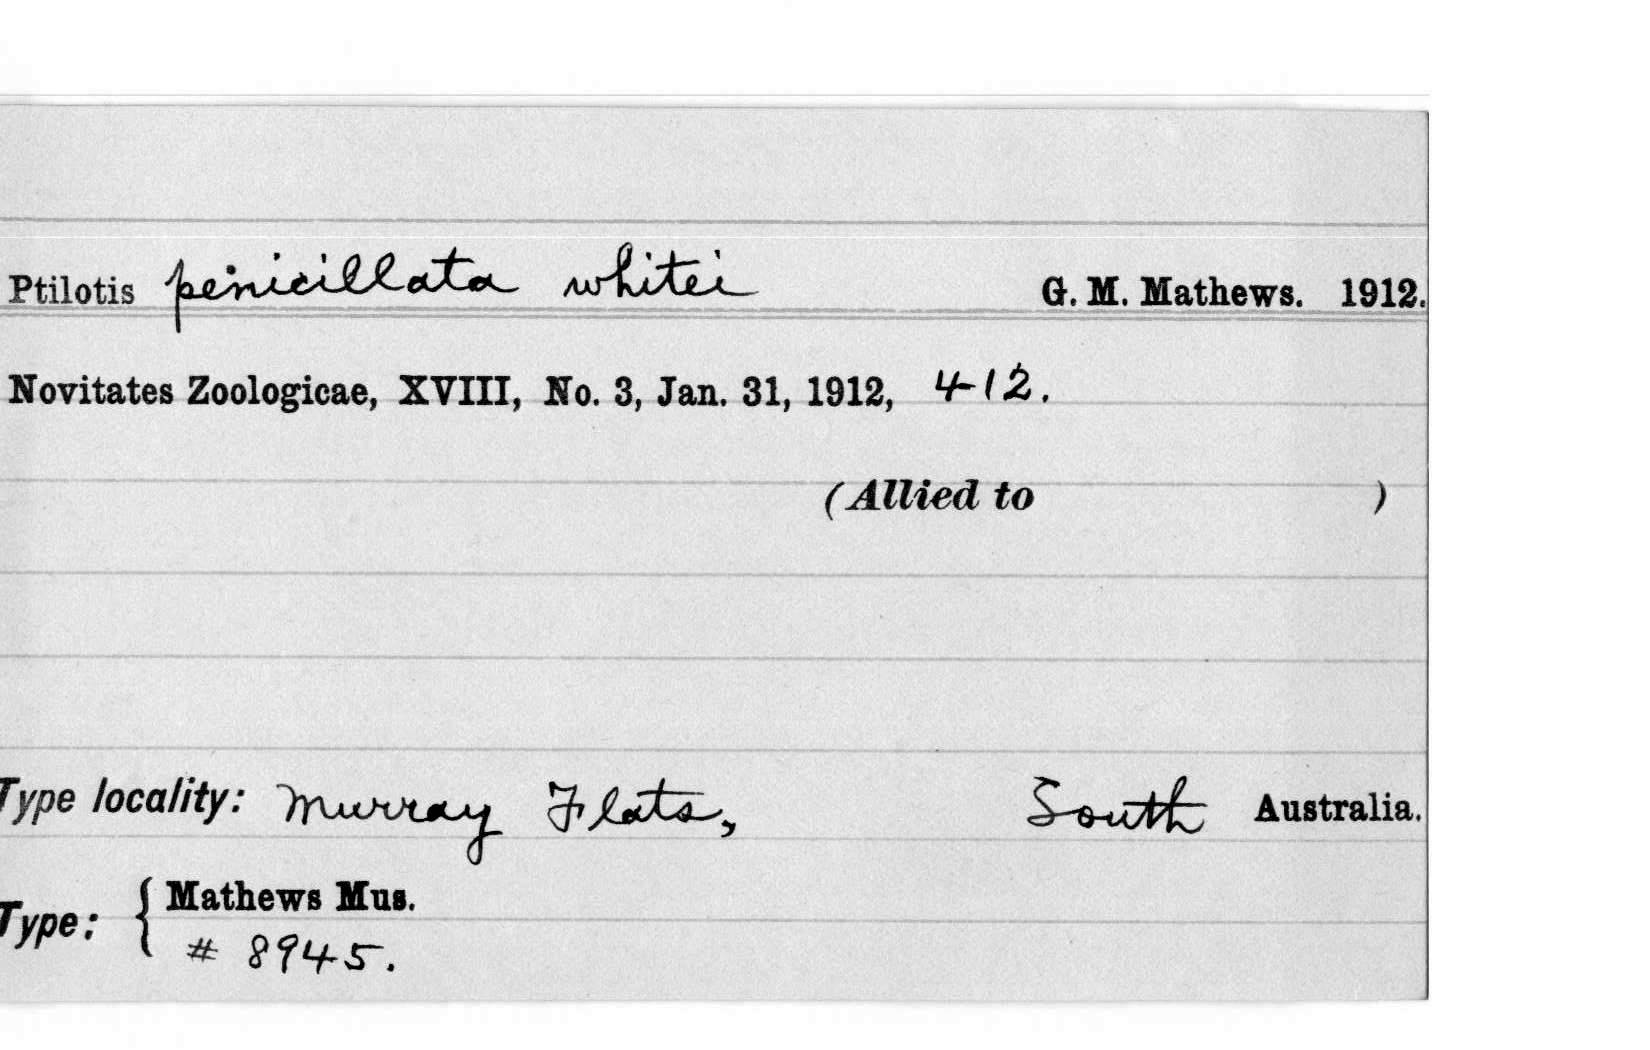 Ptilotis penicillata whitei G. M. Mathews. 1912.
Novitates Zoologicae, XVIII, No. 3, Jan. 31, 1912, 412.
(Allied to )
Type locality: Murray Flats, South Australia.
Type: { Mathews Mus.
# 8945.